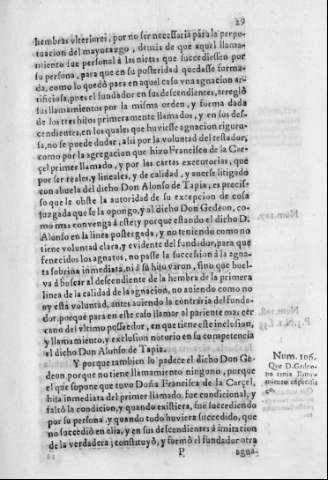 29
hembras vlteriores, por no ser necessaria para la perpe-
tuacion del mayorazgo, demàs de que aquel llama-
miento fue personal à las nietas que sucediessen por
su persona, para que en su posteridad quedasse forma-
da, como lo quedò para en aquel caso vna agnacion ar-
tificiosa, pues el fundador en sus descendientes, arreglò
sus llamamientos por la misma orden, y forma dada
de los tres hijos primeramente llamados, y en sus des-
cendientes, en los quales que huviesse agnacion riguro-
sa, no se puede dudar, assi por la voluntad del testador,
como por la agregacion que hizo Francisco de la Car-
cel primer llamado, y por las cartas executorias, que
por ser reales, y lineales, y de calidad, y averse litigado
con abuela del dicho Don Alonso de Tapia, es precis-
so que le obste la autoridad de su excepcion de cosa
juzgada que se la opongo, y al dicho Don Gedeon, co-
mo mas convenga à este; y porque estando el dicho D.
Alonso en la linea postergada, y no teniendo como no
tiene voluntad clara, y evidente del fundador, para que
fenecidos los agnatos, no passe la succession à la agna-
ta sobrina inmediata, ni à su hijo varon, sino que buel-
va à buscar al descendiente de la hembra de la primera
linea de la calidad de la agnacion, no aviendo como no
ay està voluntad, antes aviendo la contraria del funda-
dor, porque para en este caso llamar al pariente mas cer-
cano del vltimo posseedor, en que tiene este inclusion,
y llamamiento, y exclusion notorio en su competencia
el dicho Don Alonso de Tapia.
Y porque tambien lo padece el dicho Don Ge-
deon, porque no tiene llamamiento ninguno, porque
el que supone que tuvo Doña Francisca de la Carcel,
hita inmediata del primer llamado, fue condicional, y
faltò la condicion, y quando existiera, fue sucediendo
por su persona, y quando todo huviera succedido, que
no sucediò en ella, y en sus descendientes à imitacion
de la verdadera, constituyò, y formò el fundador otra
P agna-
Num. 106.
Que D. Gedeo-
no tenia llama-
miento especifi-
co.